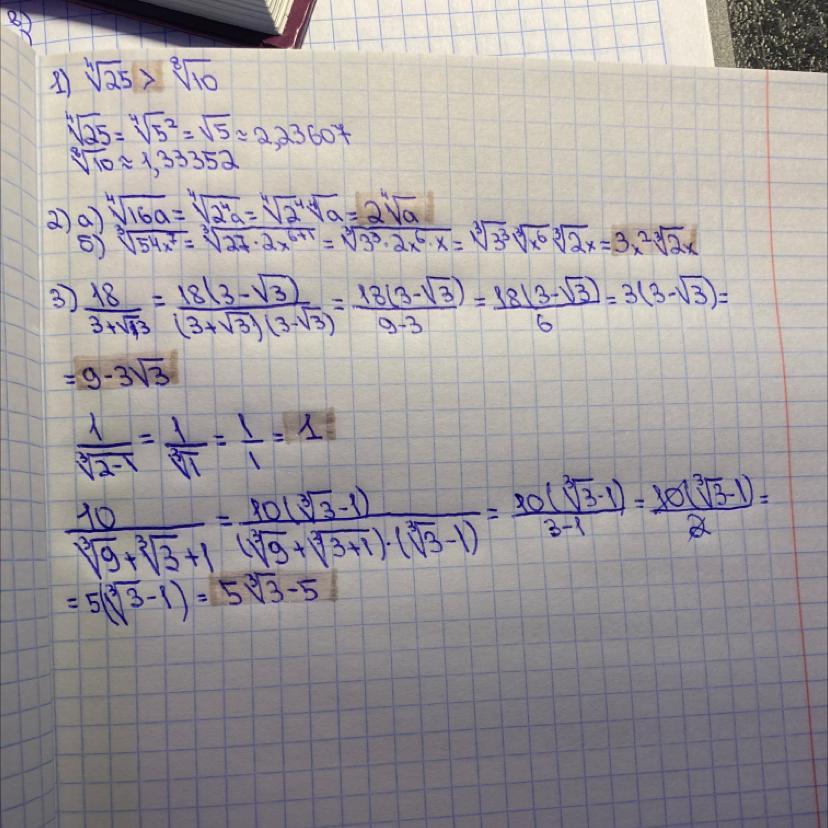 1) ⁴√25 > ⁸√10
⁴√25 = ⁴√5² = √5 ≈ 2,23607
⁸√10 ≈ 1,33352
2) а) ⁴√16a = ⁴√2⁴a = ⁴√2⁴ ⁴√a = 2⁴√a
б) ³√54x⁷ = ³√27·2x⁶⁺¹ = ³√3³·2x⁶·x = ³√3³ ³√x⁶ ³√2x = 3x² ³√2x
3) 18/(3+√3) = 18(3-√3)/((3+√3)(3-√3)) = 18(3-√3)/(9-3) = 18(3-√3)/6 = 3(3-√3) =
= 9-3√3
1/³√(2-1) = 1/³√1 = 1/1 = 1
10/(³√9+³√3+1) = 10(³√3-1)/((³√9+³√(3+1))·(³√3-1)) = 10(³√3-1)/(3-1) = 10(³√3-1)/2 =
= 5(³√3-1) = 5³√3-5